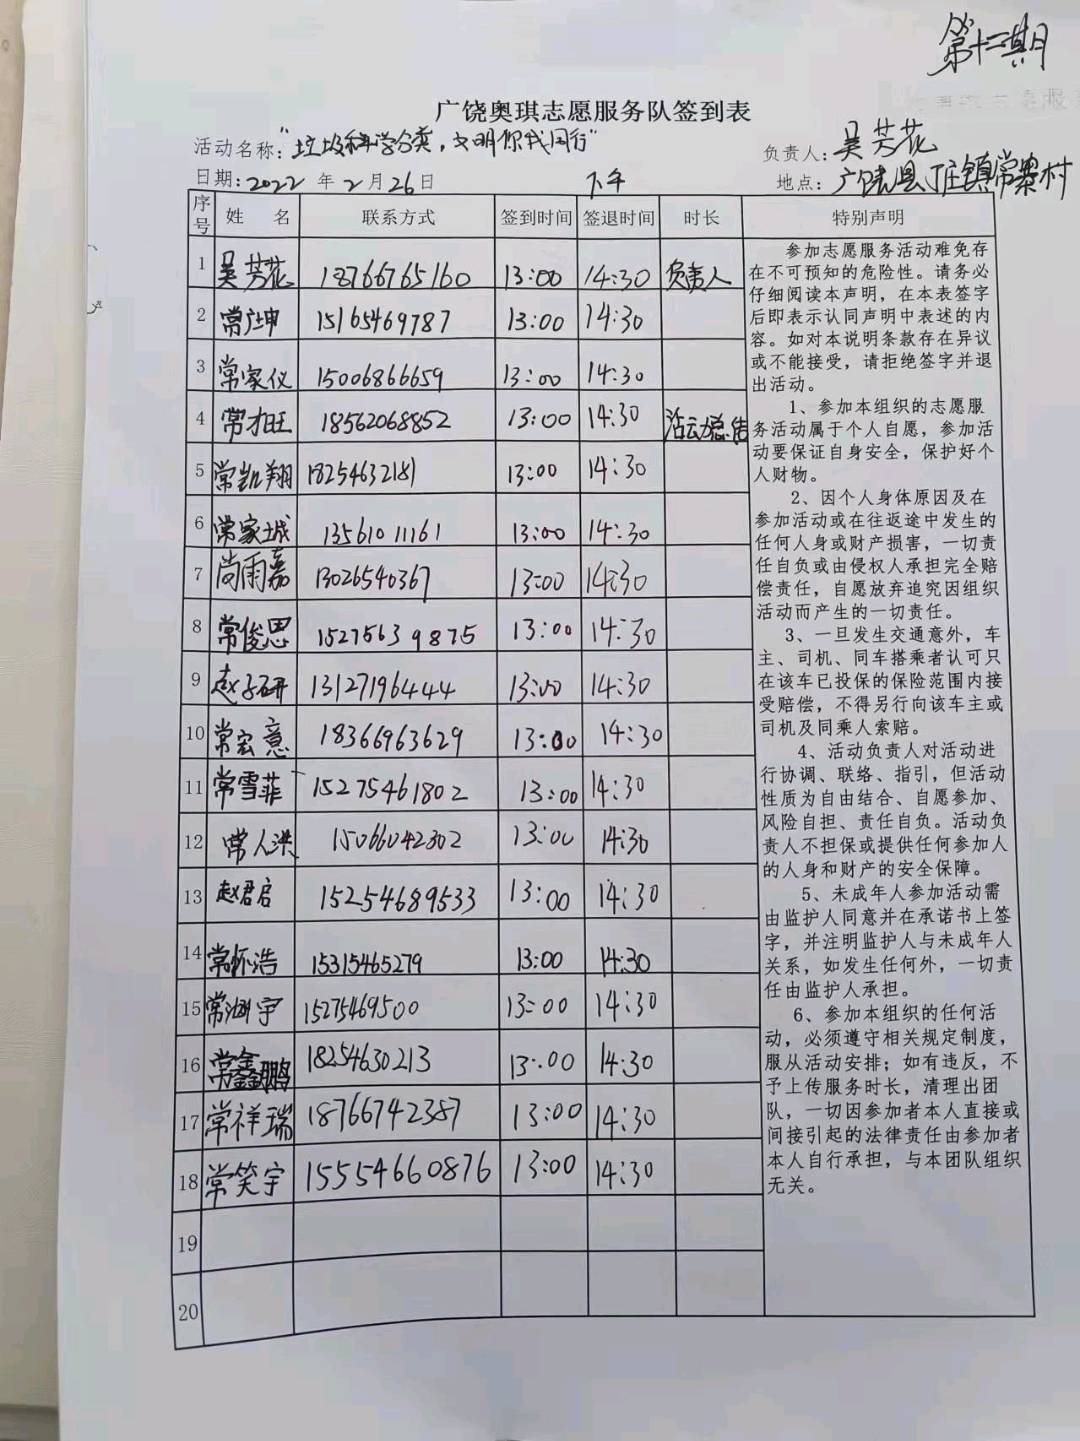 第十二期
广饶奥琪志愿服务队签到表
活动名称："垃圾科学分类，文明你我同行"
负责人：吴芳花
日期：2022 年 2 月 26 日 下午
地点：广饶县丁庄镇常寨村
序号 姓 名 联系方式 签到时间 签退时间 时长 特别声明
1 吴芳花 18766765160 13:00 14:30 负责人
2 常红坤 15165469787 13:00 14:30
3 常家仪 15006866659 13:00 14:30
4 常才旺 18562068852 13:00 14:30 活动总结
5 常凯翔 18254632181 13:00 14:30
6 常家城 13561011161 13:00 14:30
7 尚雨嘉 13026540367 13:00 14:30
8 常俊思 15275639875 13:00 14:30
9 赵子研 13127196444 13:00 14:30
10 常宏意 18366963629 13:00 14:30
11 常雪菲 15275461802 13:00 14:30
12 常人洪 15066042302 13:00 14:30
13 赵君启 15254689533 13:00 14:30
14 常怀浩 15315465279 13:00 14:30
15 常 宇 15275469500 13:00 14:30
16 常鑫鹏 18254630213 13:00 14:30
17 常祥瑞 18766742387 13:00 14:30
18 常笑宇 15554660876 13:00 14:30
19
20
参加志愿服务活动难免存
在不可预知的危险性。请务必
仔细阅读本声明，在本表签字
后即表示认同声明中表述的内
容。如对本说明条款存在异议
或不能接受，请拒绝签字并退
出活动。
1、参加本组织的志愿服
务活动属于个人自愿，参加活
动要保证自身安全，保护好个
人财物。
2、因个人身体原因及在
参加活动或在往返途中发生的
任何人身或财产损害，一切责
任自负或由侵权人承担完全赔
偿责任，自愿放弃追究因组织
活动而产生的一切责任。
3、一旦发生交通意外，车
主、司机、同车搭乘者认可只
在该车已投保的保险范围内接
受赔偿，不得另行向该车主或
司机及同乘人索赔。
4、活动负责人对活动进
行协调、联络、指引，但活动
性质为自由结合、自愿参加、
风险自担、责任自负。活动负
责人不担保或提供任何参加人
的人身和财产的安全保障。
5、未成年人参加活动需
由监护人同意并在承诺书上签
字，并注明监护人与未成年人
关系，如发生任何外，一切责
任由监护人承担。
6、参加本组织的任何活
动，必须遵守相关规定制度，
服从活动安排；如有违反，不
予上传服务时长，清理出团
队，一切因参加者本人直接或
间接引起的法律责任由参加者
本人自行承担，与本团队组织
无关。